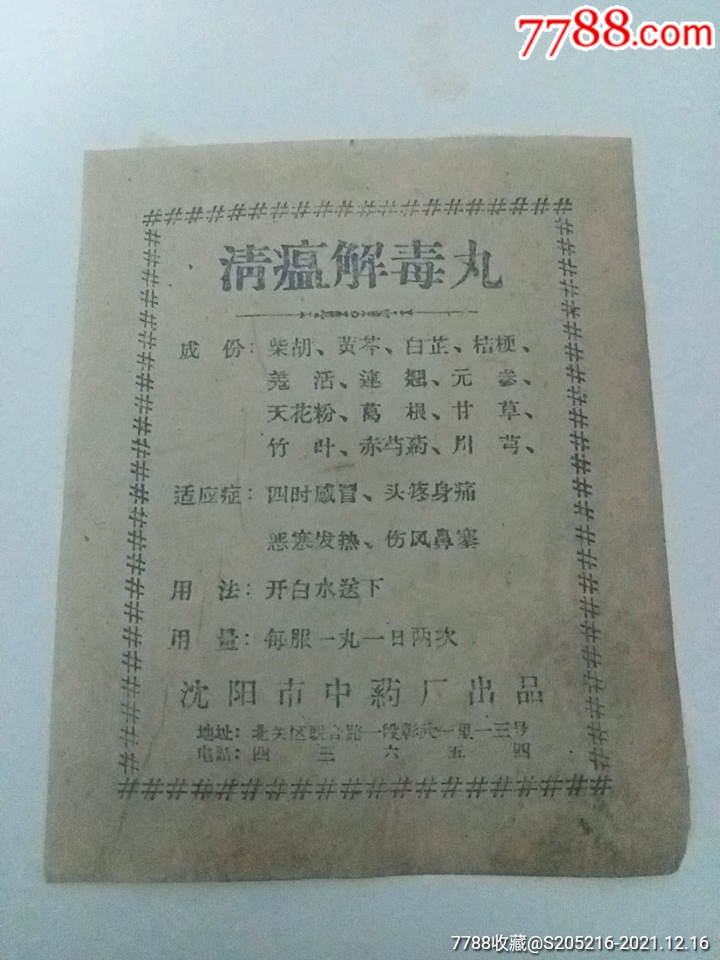 7788.com
清瘟解毒丸
成份：柴胡、黄芩、白芷、桔梗、
羌活、連翘、元参、
天花粉、葛根、甘草、
竹叶、赤芍药、川芎、
适应症：四时感冒、头疼身痛
恶寒发热、伤风鼻塞
用法：开白水送下
用量：每服一丸一日两次
沈阳市中药厂出品
地址：北关区联合路一段彰武一里一三号
电話：四三六五四
7788收藏@S205216-2021.12.16